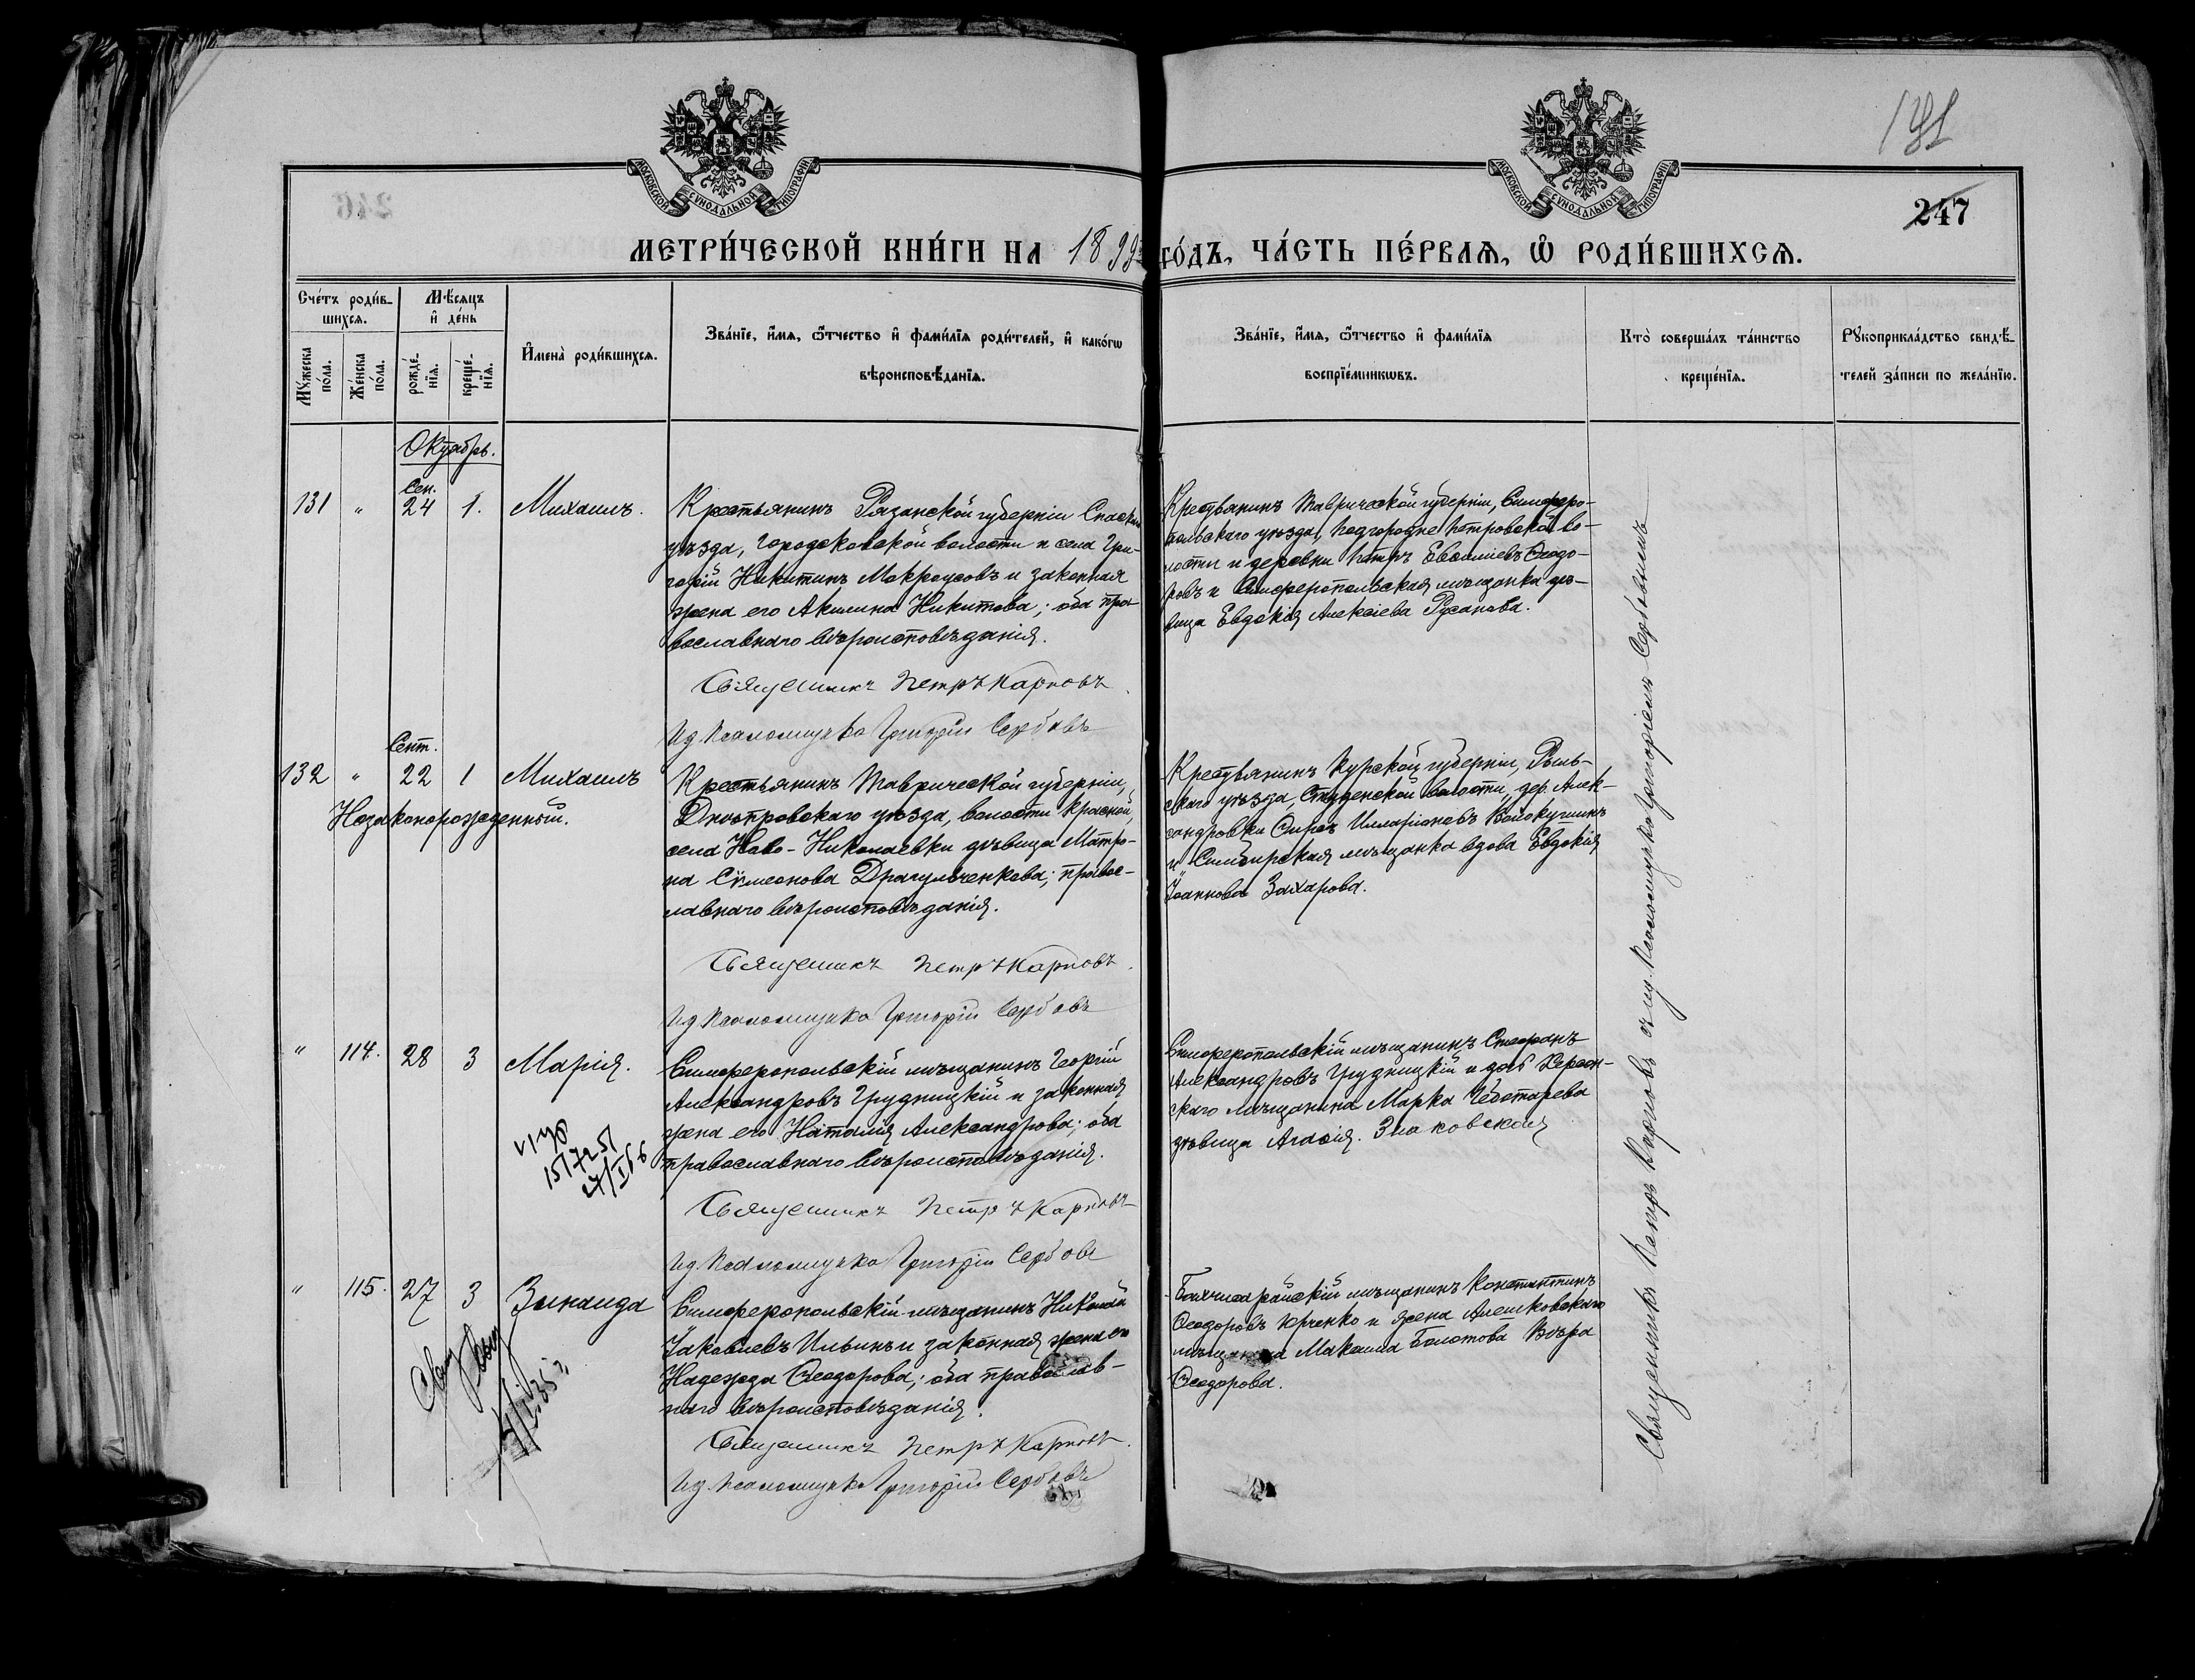 МОСКОВСКОЙ СУНОДАЛЬНОЙ ТИПОГРАФІИ
МОСКОВСКОЙ СУНОДАЛЬНОЙ ТИПОГРАФІИ
191
247
МЕТРИ́ЧЕСКОЙ КНИ́ГИ НА 1899 ГО́ДЪ, ЧА́СТЬ ПЕ́РВАѦ, Ѡ РОДИ́ВШИХСѦ.
Сче́тъ роди́в-
шихсѧ.
Мꙋ́жеска по́ла.
Же́нска по́ла.
Мѣ́сѧцъ
и҆ де́нь
рожде́-
нїѧ.
креще́-
нїѧ.
И҆мена̀ роди́вшихсѧ.
Зва́нїе, и҆́мѧ, ѻ҆́тчество и҆ фами́лїѧ роди́телей, и҆ како́гѡ
вѣроисповѣ́данїѧ.
Зва́нїе, и҆́мѧ, ѻ҆́тчество и҆ фами́лїѧ
воспрїе́мникѡвъ.
Кто̀ соверша́лъ та́инство
креще́нїѧ.
Рꙋкоприкла́дство свидѣ́-
телей за́писи по жела́нїю.
Октябрь.
Сен.
131 " 24 1. Михаилъ.
Крестьянинъ Рязанской губерніи Спаскаго
уѣзда, Городсковской волости и села Гри-
горій Никитинъ Мокроусовъ и законная
жена его Акилина Никитова; оба пра-
вославнаго вѣроисповѣданія.
Священникъ Петръ Карповъ
Ид Псаломщика Григорій Сербовъ
Крестьянинъ Таврической губерніи, Симферо-
польскаго уѣзда, Подгородне Петровской во-
лости и деревни Петръ Евсиміевъ Ѳеодо-
ровъ и Симферопольская мѣщанка дѣ-
вица Евдокія Алексіева Русанова.
Сент.
132 " 22 1 Михаилъ
Незаконорожденный.
Крестьянинъ Таврической губерніи,
Днѣпровскаго уѣзда, волости Красной,
села Ново-Николаевки дѣвица Матро-
на Сѵмеонова Драгульченкова; правос-
лавнаго вѣроисповѣданія.
Священникъ Петръ Карповъ.
Ид Псаломщика Григорій Сербовъ
Крестьянинъ Курской губерніи, Рыль-
скаго уѣзда, Студенской волости, дер. Алек-
сандровки Спирѵ Илларіоновъ Волокушинъ
и Симбирская мѣщанка вдова Евдокія
Іоаннова Захарова.
" 114. 28 3 Марія.
Симферопольскій мѣщанинъ Георгій
Александровъ Грудницкій и законная
жена его Наталія Александрова; оба
православнаго вѣроисповѣданія.
Священникъ Петръ Карповъ
Ид Псаломщика Григорій Сербовъ
Симферопольскій мѣщанинъ Стефанъ
Александровъ Грудницкій и дочь Херсон-
скаго мѣщанина Марка Чеботарева
дѣвица Агафія. Знаковская
" 115. 27 3 Зинаида
Симферопольскій мѣщанинъ Николай
Іаковлевъ Ильинъ и законная жена его
Надежда Ѳеодорова; оба православ-
наго вѣроисповѣданія.
Священникъ Петръ Карповъ.
Ид Псаломщика Григорій Сербовъ
Бахчисарайскій мѣщанинъ Константинъ
Ѳеодоровъ Юрченко и жена Алешковскаго
мѣщанина Максима Болотова Вѣра
Ѳеодорова.
Священникъ Петръ Карповъ съ ид. псаломщика Григоріемъ Сербовымъ